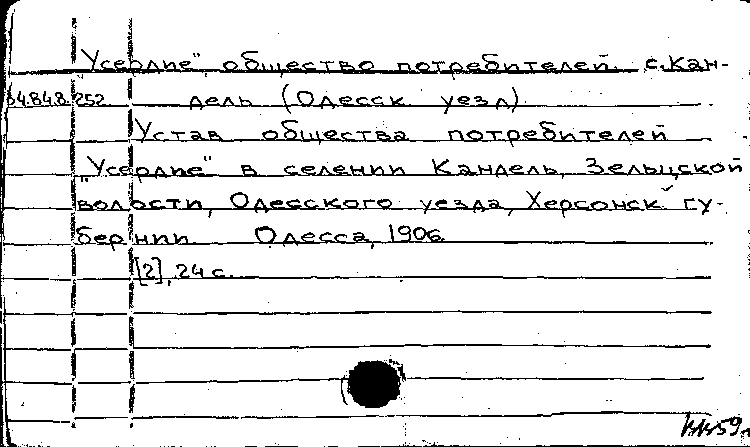 "Усердие", общество потребителей. с. Кан-
34.84.8.252 дель (Одесск. уезд).
Устав общества потребителей
"Усердие" в селении Кандель, Зельцской
волости, Одесского уезда, Херсонск. гу-
бернии. Одесса, 1906.
[2], 24 с.